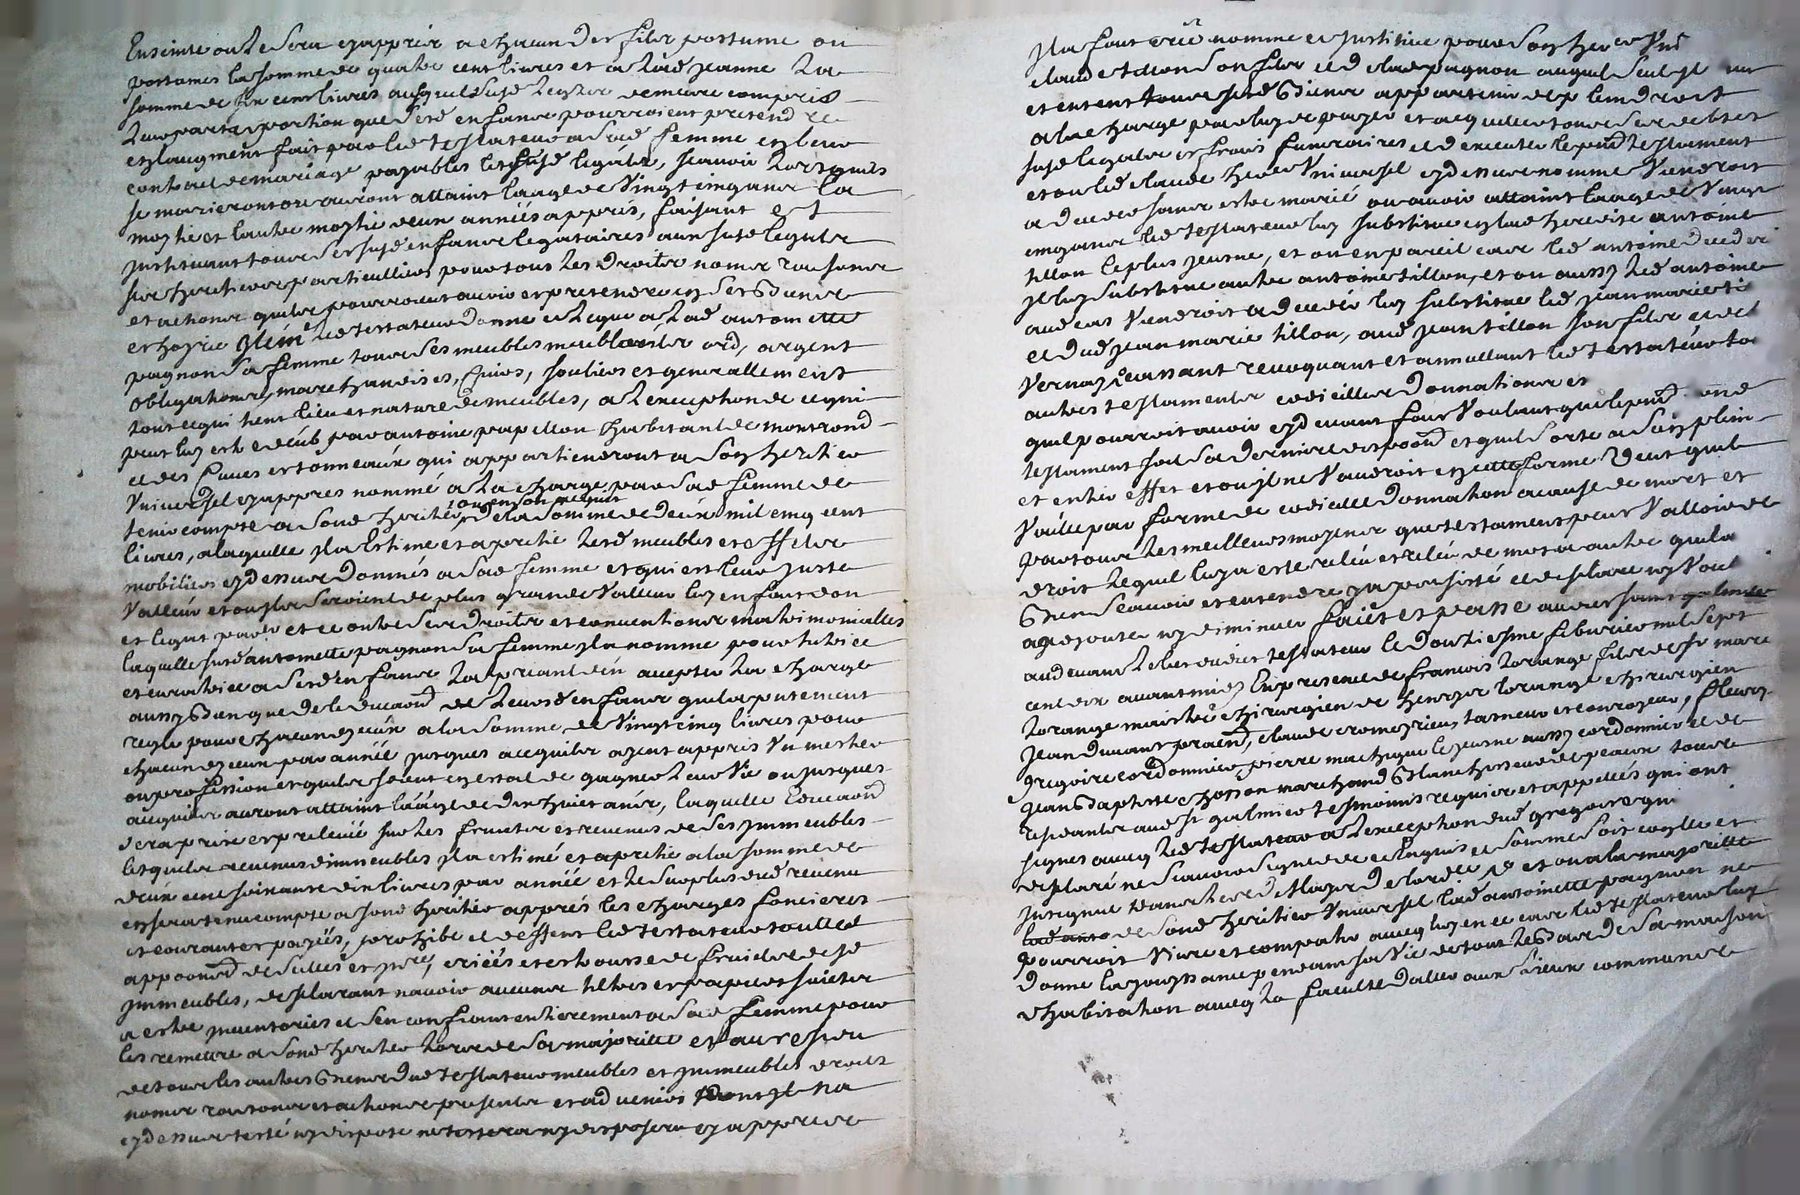 Enseinte ou le sera cyapprès a chacun des fils postume ou
postumes la somme de quatre cent livres et a lad jeanne la
somme de six cens livres auxquels susd legats demeure compris
leurs parts et portion que lesd enfans pourroient pretendre
en laugment fait par led testateur a sad femme en leur
contract de mariage payables lesd susd legats, scavoir lorsquils
se marieront ou auront attaint laage de vingt cinq ans la
moytié et lautre moytié deux années apprès, faisant et
instituant tous ses susd enfans legataires aux susd legats
ses heritiers particulliers pour tous les droits noms raisons
et actions quils pourroient avoir et pretendre en ses biens
et hoyrie Item led testateur donne et legue a lad antoinette
pagnon sa femme tous ses meubles meublants or, argent
obligations, marchandises, cuirs, souliers et generallement
tout ce qui tient lieu et nature de meubles, a lexception de ce qui
peut luy estre deub par antoine papillon habitant de montrond
et des cuves et tonneaux qui appartiendront a son heritier
universel cyapprès nommé a la charge par sad femme de
tenir compte a sond heritier de la somme de deux mil cinq cent
livres, a laquelle il a estimé et apretié lesd meubles et effets
mobiliers cydessus donnés a sad femme et qui est leur juste
valleur et ou ils seroient de plus grande valleur luy en fait don
et legat et ce outre ses droits et conventions matrimonialles
laquelle susd antoinette pagnon sa femme il a nomme pour tutrice
et curatrice a sesd enfans la priant den accepter la charge
aussy bien que de leducaon de leursd enfans quil a purement
regle pour chacun deux a la somme de vingt cinq livres pour
chacun deux par année jusques a ce quils ayent appris un mestier
ou profession et quils soient en estat de gagner leur vie ou jusques
a ce quils auront attaint laage de dix huict ans, laquelle educaon
sera prise et prelevée sur les fruits et revenus de ses immeubles
lesquels revenus dimmeubles il a estimé et apretié a la somme de
deux cens soixante dix livres par année et le surplus dud revenu
en sera tenu compte a sond heritier apprès les charges foncieres
et courantes payées, prohibe et deffend led testateur toutte
apposon de scellés et criées et estrousse de fruicts de ses
immeubles, desclarant navoir aucuns tiltres et papiers sujets
a estre inventoriés et sen confiant entierement a sad femme pour
les remettre a sond heritier lors de sa majorité et au residu
de tous les autres biens dud testateur meubles et immeubles droits
noms raisons et actions presents et advenir dont il na
cydessus testé ny disposé ne testera ny disposera cy apprès
Il a fait crée nomme et institue pour son her er
claude tillon son fils et d clad pagnon auquel seul il
et entent tous sesd biens appartenir de plein droit
a la charge par luy de payer et acquitter tous ses debtes
susd legats et frais funeraires et dexecuter le pnt testament
et ou led claude her er universel cydessus nommé viendroit
a deceder sans estre marié ou avoir attaint laage de vingt
cinq ans led testateur luy substitue en lad heredité antoine
tillon le plus jeusne, et ou en pareil cas led antoine deceder
il luy substitue autre antoine tillon, et ou aussy led antoine
aud cas viendroit a deceder luy substitue led jean marie
et dud jean marie tillon, aud jean tillon son fils et de
vernay, cassant revoquant et annullant led testateur tous
autres testaments codicilles donnations et
quil pourroit avoir cydevant fait voulant que le pnt
testament soit sa derniere dispoon et quil sorte a son plein
et entier effet et ou il ne vaudroit en cette forme veut quil
vaille par forme de codicille donnation a cause de mort et
par tous les meilleurs moyens que testament peut valloir de
droit lequel luy a esté releu et releu de mot a autre quil a
bien scavoir et entendre y a persisté et desclare ny voul
adjouter ny diminuer faict et passé
aud devant lesd testateur le douziesme febvrier mil sept
cent dix avant midy En presence de francois lorange fils de sr marc
lorange maistre chirurgien de lorange chirurgien
jean durant praen, claude tanneur et conroyeur, fleury
gregoire cordonnier pierre le jeusne aussy cordonnier et de
jean baptiste chosson marchand blanchisseur de peaux tous
residants aud st galmier tesmoins requis et appellés qui ont
signés avecq led testateur a lexception dud gregoire qui
desclaré ne scavoir signer de ce enquis et sommé soit controllé et
insignué dans et ou a la majorité
de sond heritier universel lad antoinette pagnon ne
pourroit vivre et compatir avecq luy en ce cas led testateur luy
donne la jouyssance pendant sa vie de tout le bas de sa maison
dhabitation avecq la faculté daller aux lieux communs